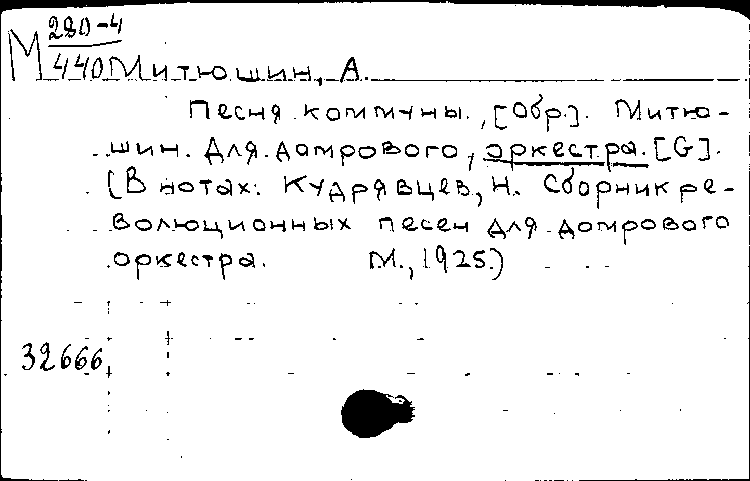 М 280-4
440 Митюшин, А.
Песня коммуны., [Обр.]. Митю-
шин. Для домрового, оркестра. [G].
(В нотах: Кудрявцев, Н. Сборник ре-
волюционных песен для домрового
оркестра. М., 1925.)
32666